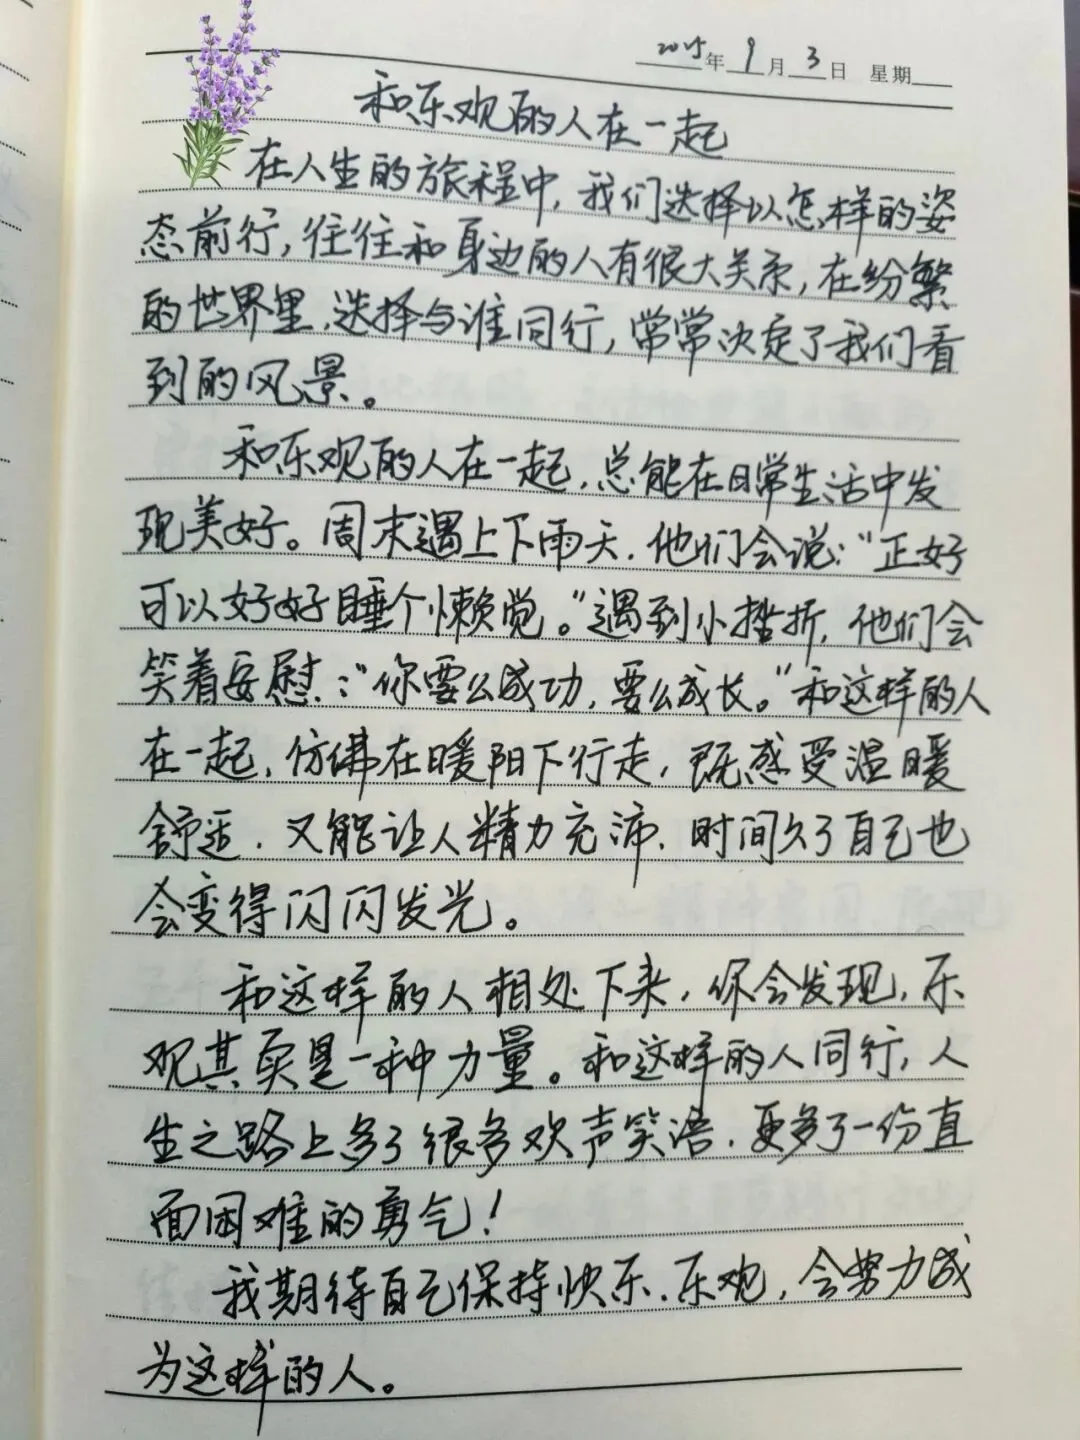 2025年9月3日 星期
和乐观的人在一起
在人生的旅程中,我们选择以怎样的姿
态前行,往往和身边的人有很大关系,在纷繁
的世界里,选择与谁同行,常常决定了我们看
到的风景。
和乐观的人在一起,总能在日常生活中发
现美好。周末遇上下雨天,他们会说:“正好
可以好好睡个懒觉。”遇到小挫折,他们会
笑着安慰:“你要么成功,要么成长。”和这样的人
在一起,仿佛在暖阳下行走,既感受温暖
舒适,又能让人精力充沛,时间久了自己也
会变得闪闪发光。
和这样的人相处下来,你会发现,乐
观其实是一种力量。和这样的人同行,人
生之路上多了很多欢声笑语,更多了一份直
面困难的勇气!
我期待自己保持快乐、乐观,会努力成
为这样的人。